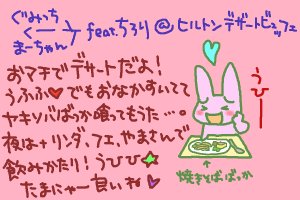 ぐみっち
く──┐ feat.ちろり@ヒルトンデザートビュッフェ
まーちゃん
おマチでデザートだよ!
うふふ♥でもおなかすいてて
ヤキソバばっか喰ってもうた…。
夜は+リンダ、フェ、やまさんで
飲みかたり!うひひ☆
たまにゃー良いね♥
うひー
↑
焼きそばばっか